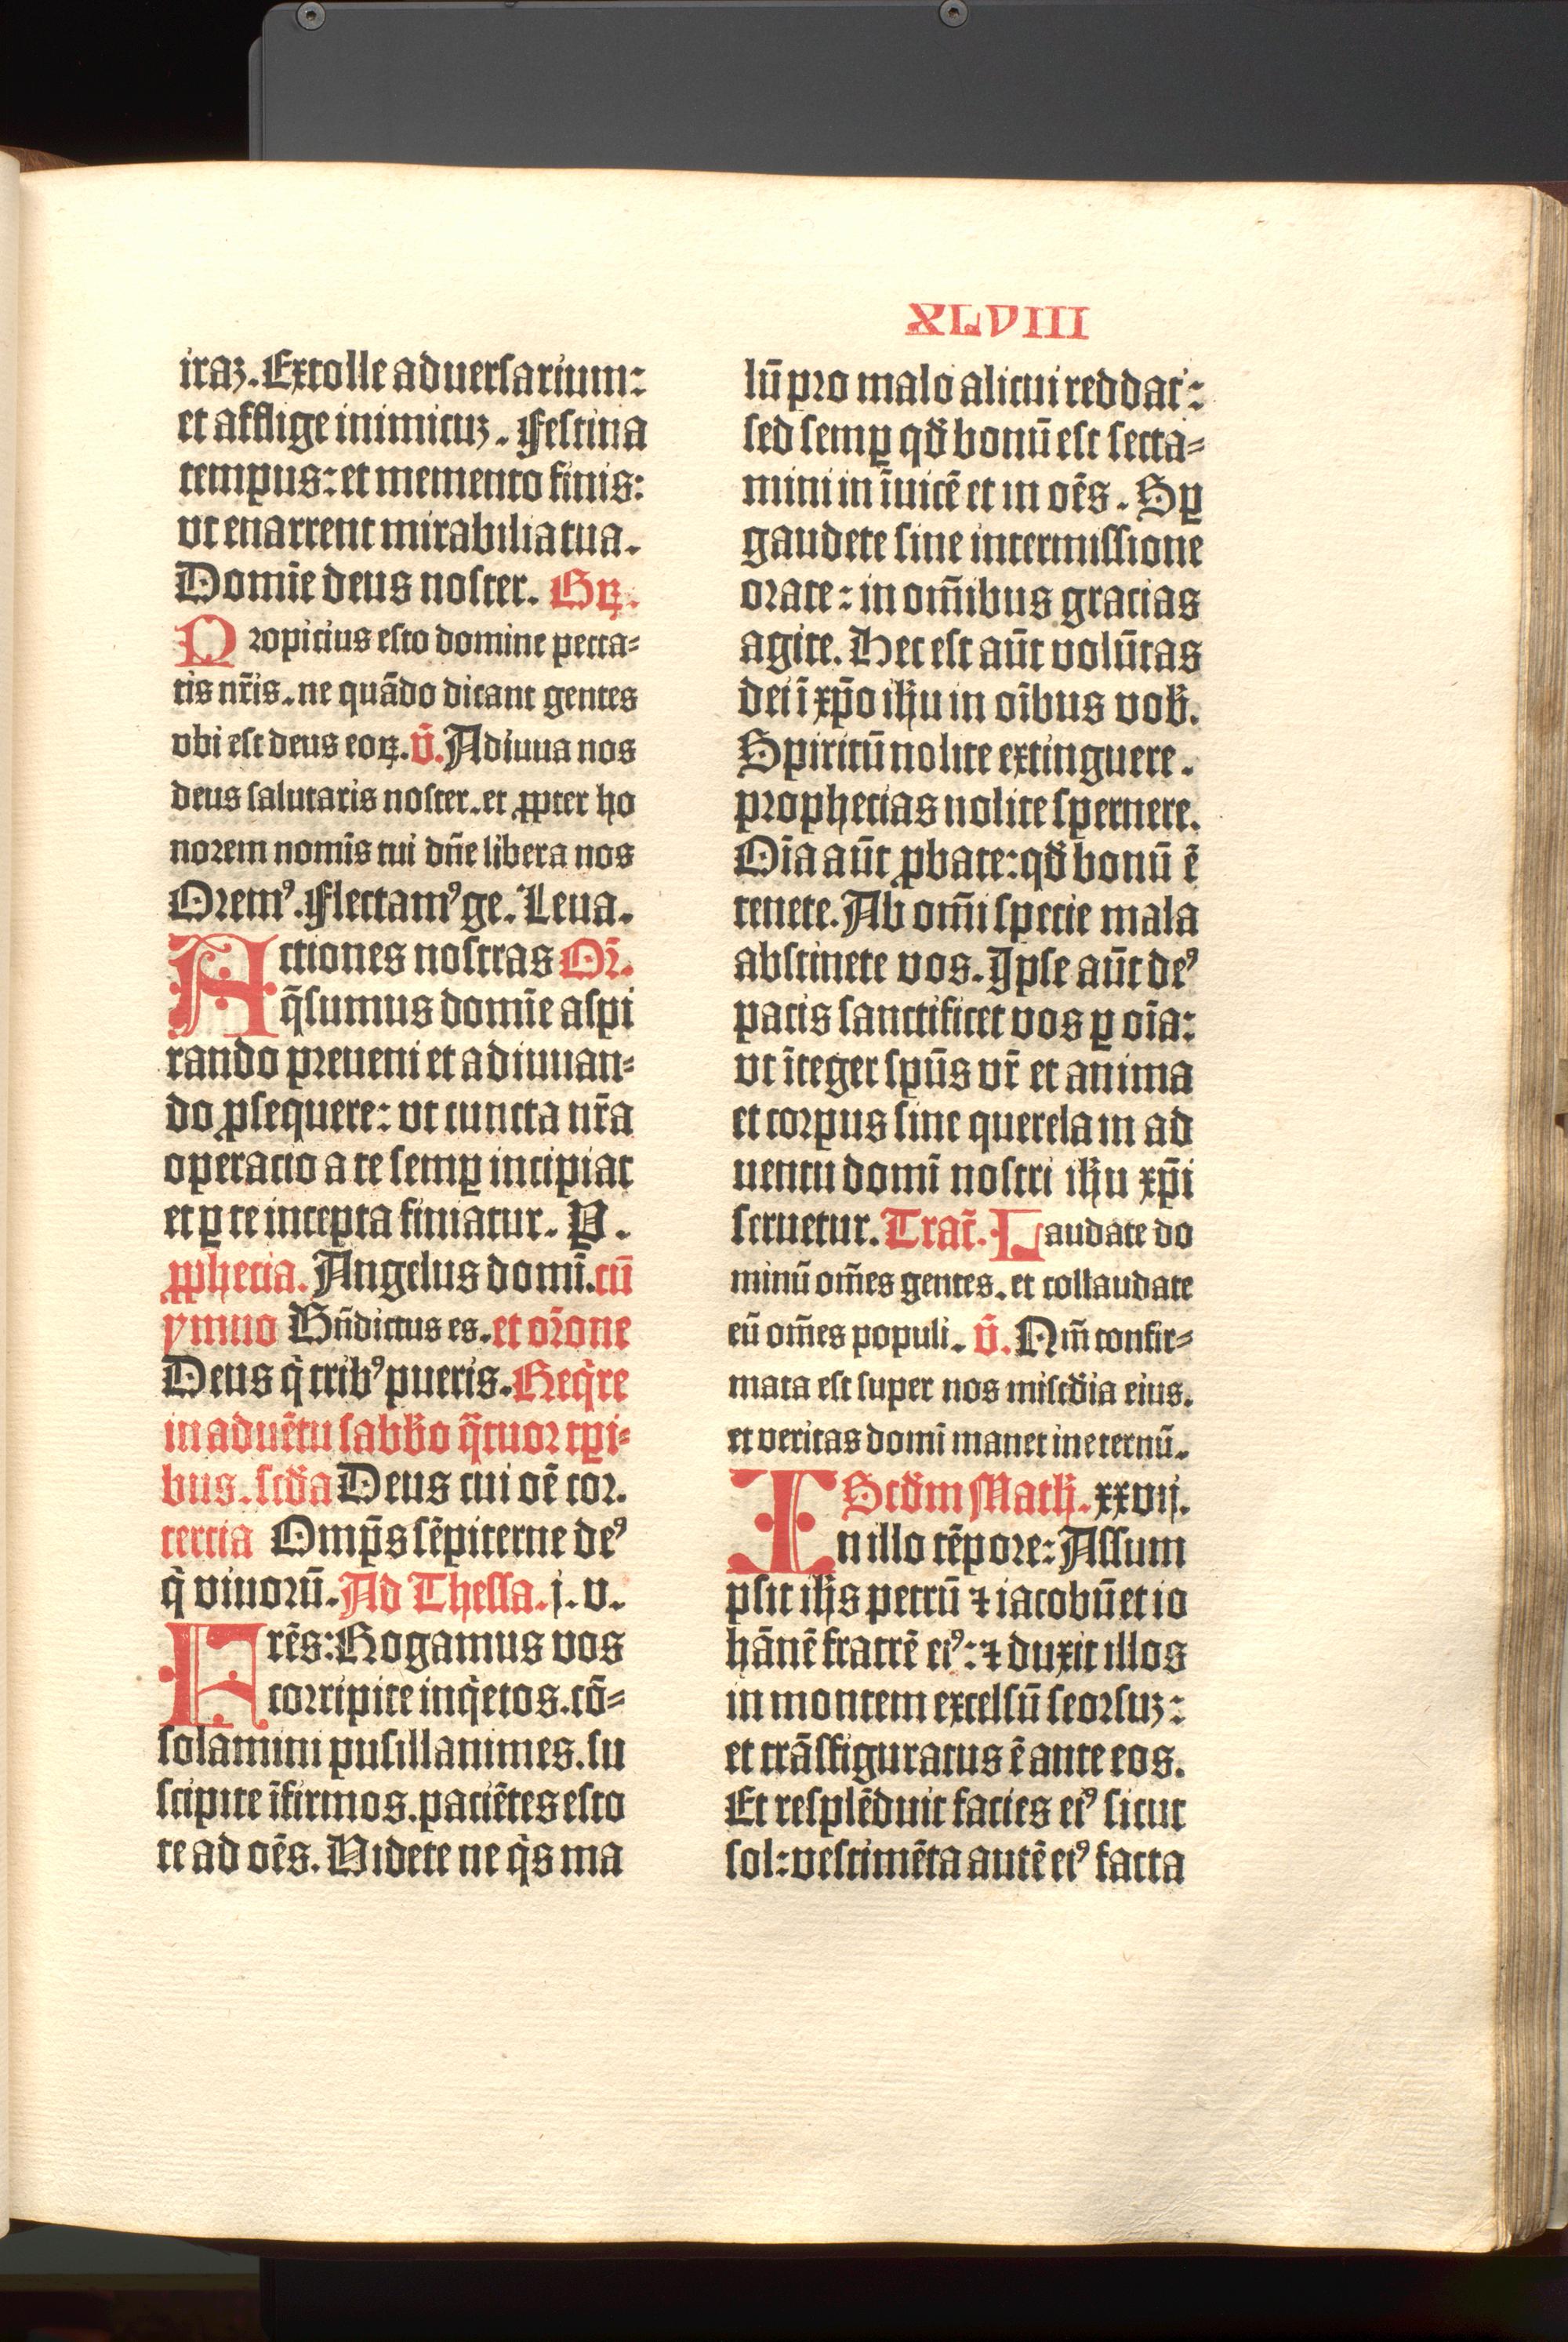 XLVIII
iraꝫ. Extolle aduersarium:
et afflige inimicuꝫ. Festina
tempus: et memento finis:
vt enarrent mirabilia tua.
Domīe deus noster. Gꝝ.
Propicius esto domine pecca⸗
tis nr̄is. ne quādo dicant gentes
vbi est deus eoꝝ. v̄. Adiuua nos
deus salutaris noster. et ꝓpter ho
norem nomīs tui dn̄e libera nos
Oremꝰ. Flectamꝰ ge. Leua.
Actiones nostras Or̄.
q̄sumus domīe aspi
rando preueni et adiuuan⸗
do ꝓsequere: vt cuncta nr̄a
operacio a te semꝑ incipiat
et ꝑ te incepta finiatur. P.
ꝓphecia. Angelus domī. cū
ymno Bn̄dictus es. et or̄one
Deus q̇ tribꝰ pueris. Req̇re
in aduētu sabb̄o q̄tuor tꝑi⸗
bus. scd̄a Deus cui oē cor.
tercia Omp̄s sēpiterne deꝰ
q̇ viuorū. Ad Thessa. j. v.
Frēs: Rogamus vos
corripite inq̇etos. cō⸗
solamini pusillanimes. su
scipite īfirmos. paciētes esto
te ad oēs. Videte ne q̇s ma
lū pro malo alicui reddat:
sed semꝑ qd̄ bonū est secta⸗
mini in īuicē et in oēs. Sꝑ
gaudete sine intermissione
orate: in om̄ibus gracias
agite. Hec est aūt volūtas
dei ī xp̄o ih̄u in oībus vob̄.
Spiritū nolite extinguere.
prophecias nolite spernere.
Oīa aūt ꝓbate: qd̄ bonū ē
tenete. Ab om̄i specie mala
abstinete vos. Ipse aūt deꝰ
pacis sanctificet vos ꝑ oīa:
vt īteger spūs vr̄ et anima
et corpus sine querela in ad
uentu domī nostri ih̄u xp̄i
seruetur. Tract̄. Laudate do
minū om̄es gentes. et collaudate
eū om̄es populi. v̄. Qm̄ confir⸗
mata est super nos misc̄dia eius.
et veritas domī manet in eternū.
Scd̄m Math̄. xxvij.
In illo tēpore: Assum
psit ih̄s petrū ⁊ iacobū et io
hānē fratrē eiꝰ: ⁊ duxit illos
in montem excelsū seorsuꝫ:
et trāsfiguratus ē ante eos.
Et resplēduit facies eiꝰ sicut
sol: vestimēta autē eiꝰ facta